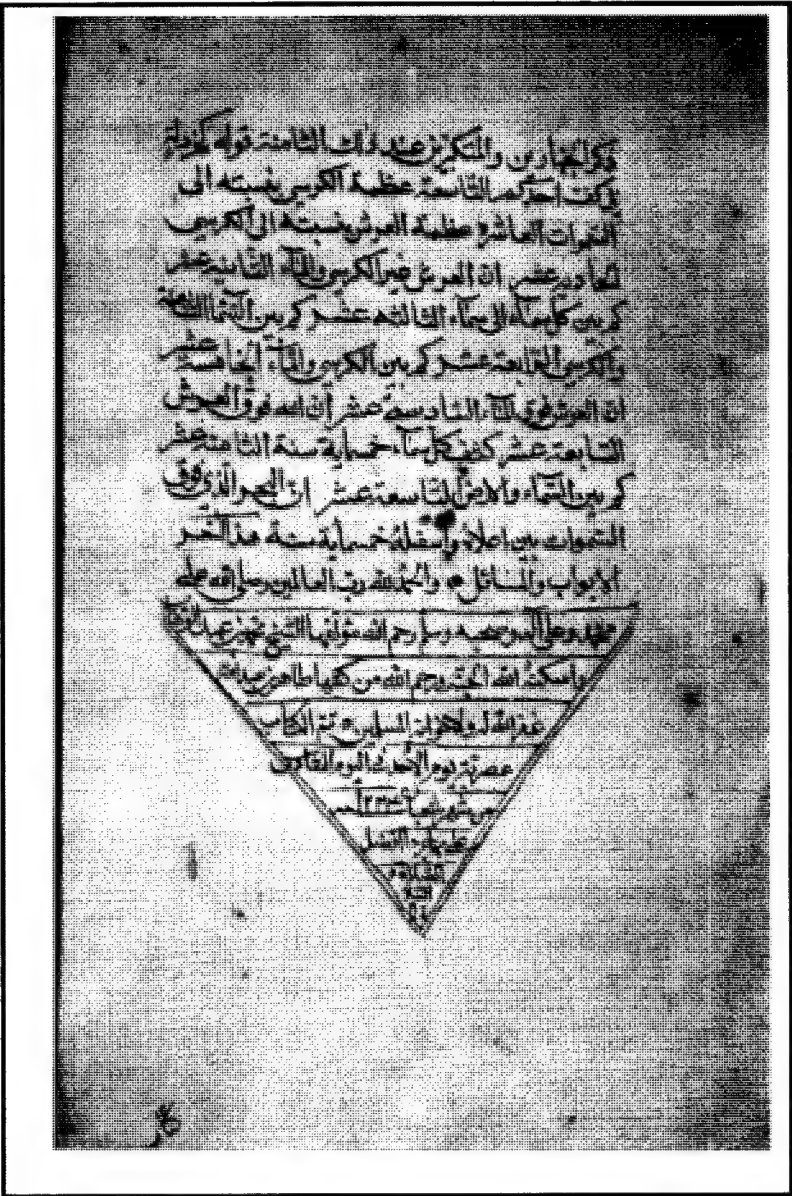 ذكر الجبارين والمتكبرين عند ذلك الثامنة قوله كخردلة
في كف احدكم التاسعة عظمة الكرسي بنسبته الى
السموات العاشرة عظمة العرش بنسبته الى الكرسي
الحادية عشر ان العرش غير الكرسي والمآء الثانية عشر
كم بين كل سمآء الى سمآء الثالثة عشر كم بين السمآ السابعة
والكرسي الرابعة عشر كم بين الكرسي والمآء الخامسة عشر
ان العرش فوق المآء السادسة عشر ان الله فوق العرش
السابعة عشر كثف كل سمآء خمسماية سنة الثامنة عشر
كم بين السمآء والارض التاسعة عشر ان البحر الذي فوق
السموات بين اعلاه واسفله خمسماية سنة هذا اخر
الابواب والمسائل والحمد لله رب العالمين وصلى الله على
محمد وعلى آله وصحبه وسلم رحم الله مؤلفها الشيخ محمد بن عبد الوهاب
واسكنه الله الجنة ورحم الله من كتبها
غفر الله له ولاخوانه المسلمين تم الكتاب
يوم الاحد اليوم
من شهر
افضل
الصلاة